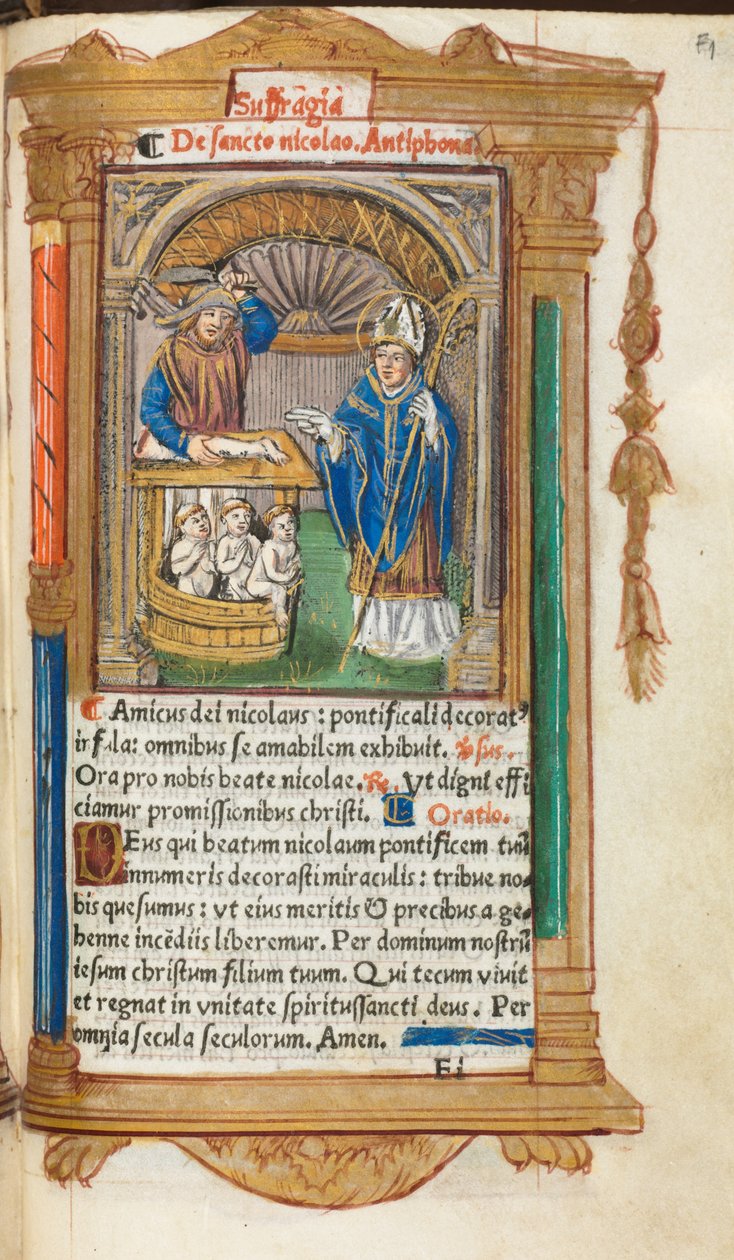 Suffragia
De sancto nicolao. Antiphona.
Amicus dei nicolaus : pontificali decorat⁹
infula: omnibus se amabilem exhibuit. ℣sus.
Ora pro nobis beate nicolae. ℟. Vt digni effi
ciamur promissionibus christi. Oratio.
DEus qui beatum nicolaum pontificem tuū
innumeris decorasti miraculis : tribue no-
bis quesumus : vt eius meritis & precibus a ge-
henne incēdiis liberemur. Per dominum nostrū
iesum christum filium tuum. Qui tecum viuit
et regnat in vnitate spiritussancti deus. Per
omnia secula seculorum. Amen.
Ei